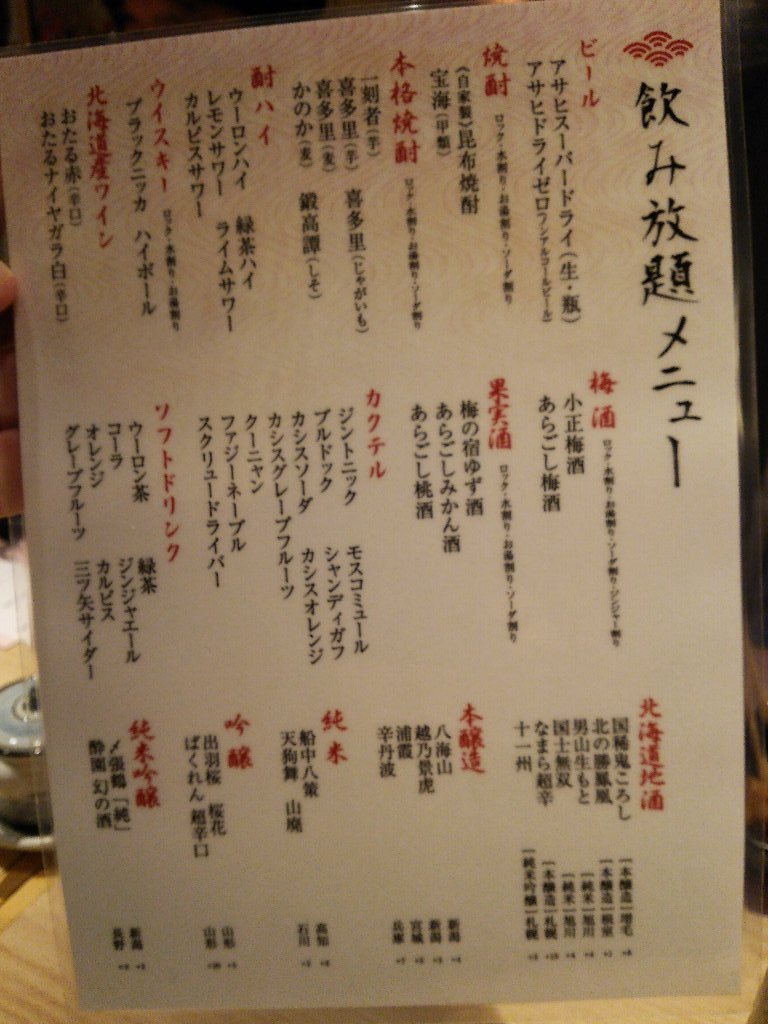 飲み放題メニュー
ビール
アサヒスーパードライ(生・瓶)
アサヒドライゼロ(ノンアルコールビール)
焼酎 ロック・水割り・お湯割り・ソーダ割り
(自家製)昆布焼酎
宝海(甲類)
本格焼酎 ロック・水割り・お湯割り・ソーダ割り
一刻者(芋)
喜多里(芋) 喜多里(じゃがいも)
喜多里(麦)
かのか(麦) 鍛高譚(しそ)
酎ハイ
ウーロンハイ 緑茶ハイ
レモンサワー ライムサワー
カルピスサワー
ウイスキー ロック・水割り・お湯割り
ブラックニッカ ハイボール
北海道産ワイン
おたる赤(辛口)
おたるナイヤガラ白(辛口)
梅酒 ロック・水割り・お湯割り・ソーダ割り・ジンジャー割り
小正梅酒
あらごし梅酒
果実酒 ロック・水割り・お湯割り・ソーダ割り
梅の宿ゆず酒
あらごしみかん酒
あらごし桃酒
カクテル
ジントニック モスコミュール
ブルドック シャンディガフ
カシスソーダ カシスオレンジ
カシスグレープフルーツ
クーニャン
ファジーネーブル
スクリュードライバー
ソフトドリンク
ウーロン茶 緑茶
コーラ ジンジャエール
オレンジ カルピス
グレープフルーツ 三ツ矢サイダー
北海道地酒
国稀鬼ころし [本醸造]増毛
北の勝鳳凰 [本醸造]根室
男山生もと [純米]旭川
国士無双 [純米]旭川
なまら超辛 [本醸造]札幌
十一州 [純米吟醸]札幌
本醸造
八海山 新潟
越乃景虎 新潟
浦霞 宮城
辛丹波 兵庫
純米
船中八策 高知
天狗舞 山廃 石川
吟醸
出羽桜 桜花 山形
ばくれん 超辛口 山形
純米吟醸
〆張鶴「純」 新潟
酔園 幻の酒 長野